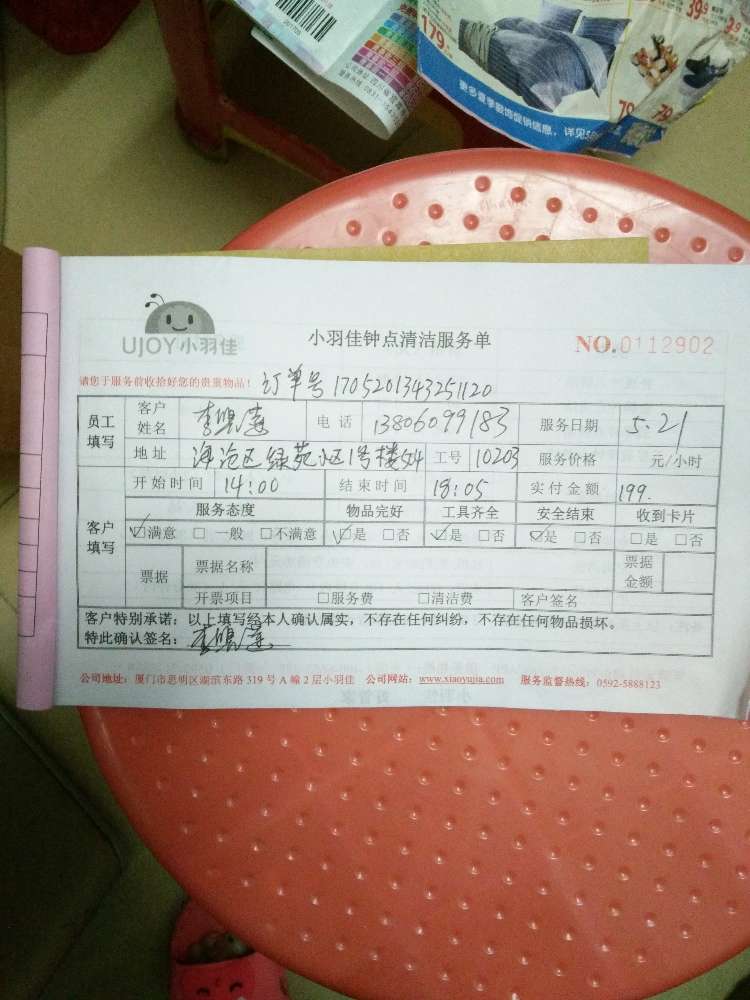 179
39.9
79
更多夏季家饰促销信息，详见
UJOY小羽佳
小羽佳钟点清洁服务单
NO.0112902
请您于服务前收拾好您的贵重物品！ 订单号 1705201343251120
员工填写 客户姓名 电话 13806099183 服务日期 5.21
地址 海沧区绿苑小区1号楼504 工号 10203 服务价格 元/小时
开始时间 14:00 结束时间 18:05 实付金额 199.
客户填写 服务态度 物品完好 工具齐全 安全结束 收到卡片
☑满意 □一般 □不满意 ☑是 □否 ☑是 □否 ☑是 □否 □是 □否
票据 票据名称 票据金额
开票项目 □服务费 □清洁费 客户签名
客户特别承诺：以上填写经本人确认属实，不存在任何纠纷，不存在任何物品损坏。
特此确认签名：
公司地址：厦门市思明区湖滨东路 319 号 A 幢 2 层小羽佳 公司网站：www.xiaoyujia.com 服务监督热线：0592-5888123